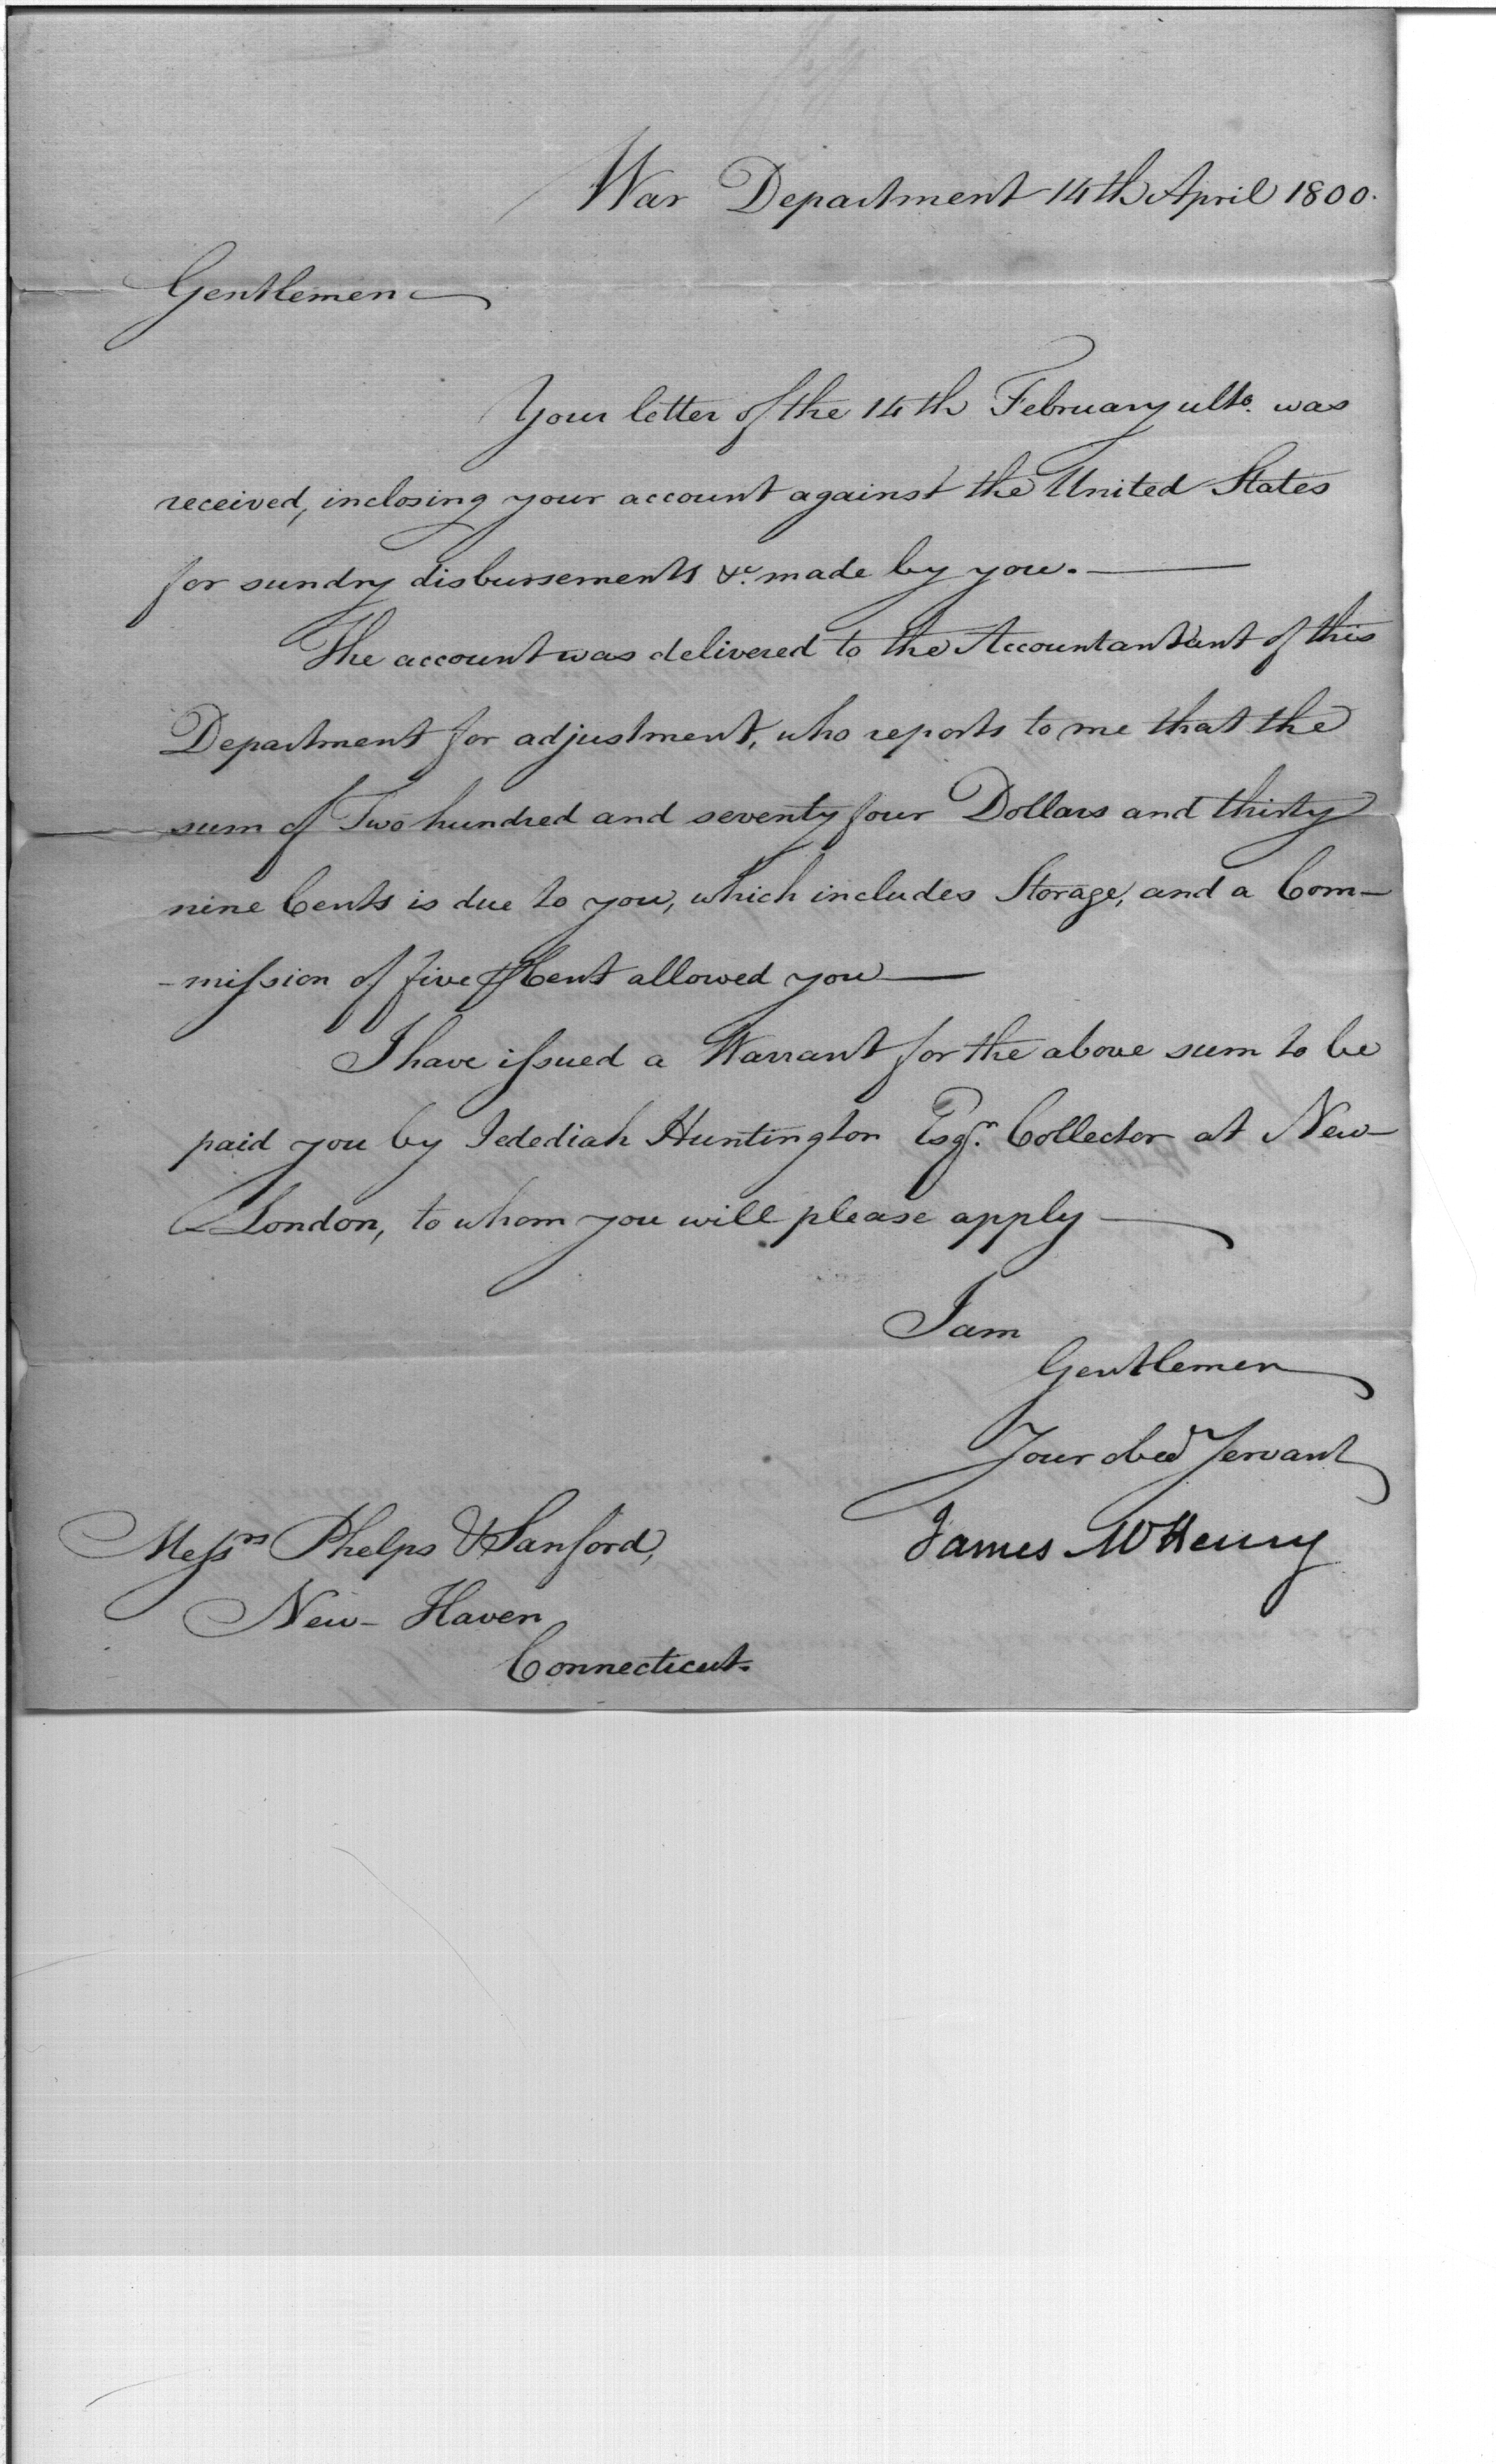 War Department 14th April 1800.
Gentlemen
Your letter of the 14th February ulto. was
received, inclosing your account against the United States
for sundry disbursements &c. made by you.—
The account was delivered to the Accountantant of this
Department for adjustment, who reports to me that the
sum of Two hundred and seventy four Dollars and thirty
nine Cents is due to you, which includes Storage, and a Com-
-mission of five ⅌ Cent allowed you—
I have issued a Warrant for the above sum to be
paid you by Jedediah Huntington Esqr. Collector at New-
London, to whom you will please apply—
I am
Gentlemen
Your obed Servant
James McHenry
Messrs Phelps & Sanford,
New-Haven
Connecticut.